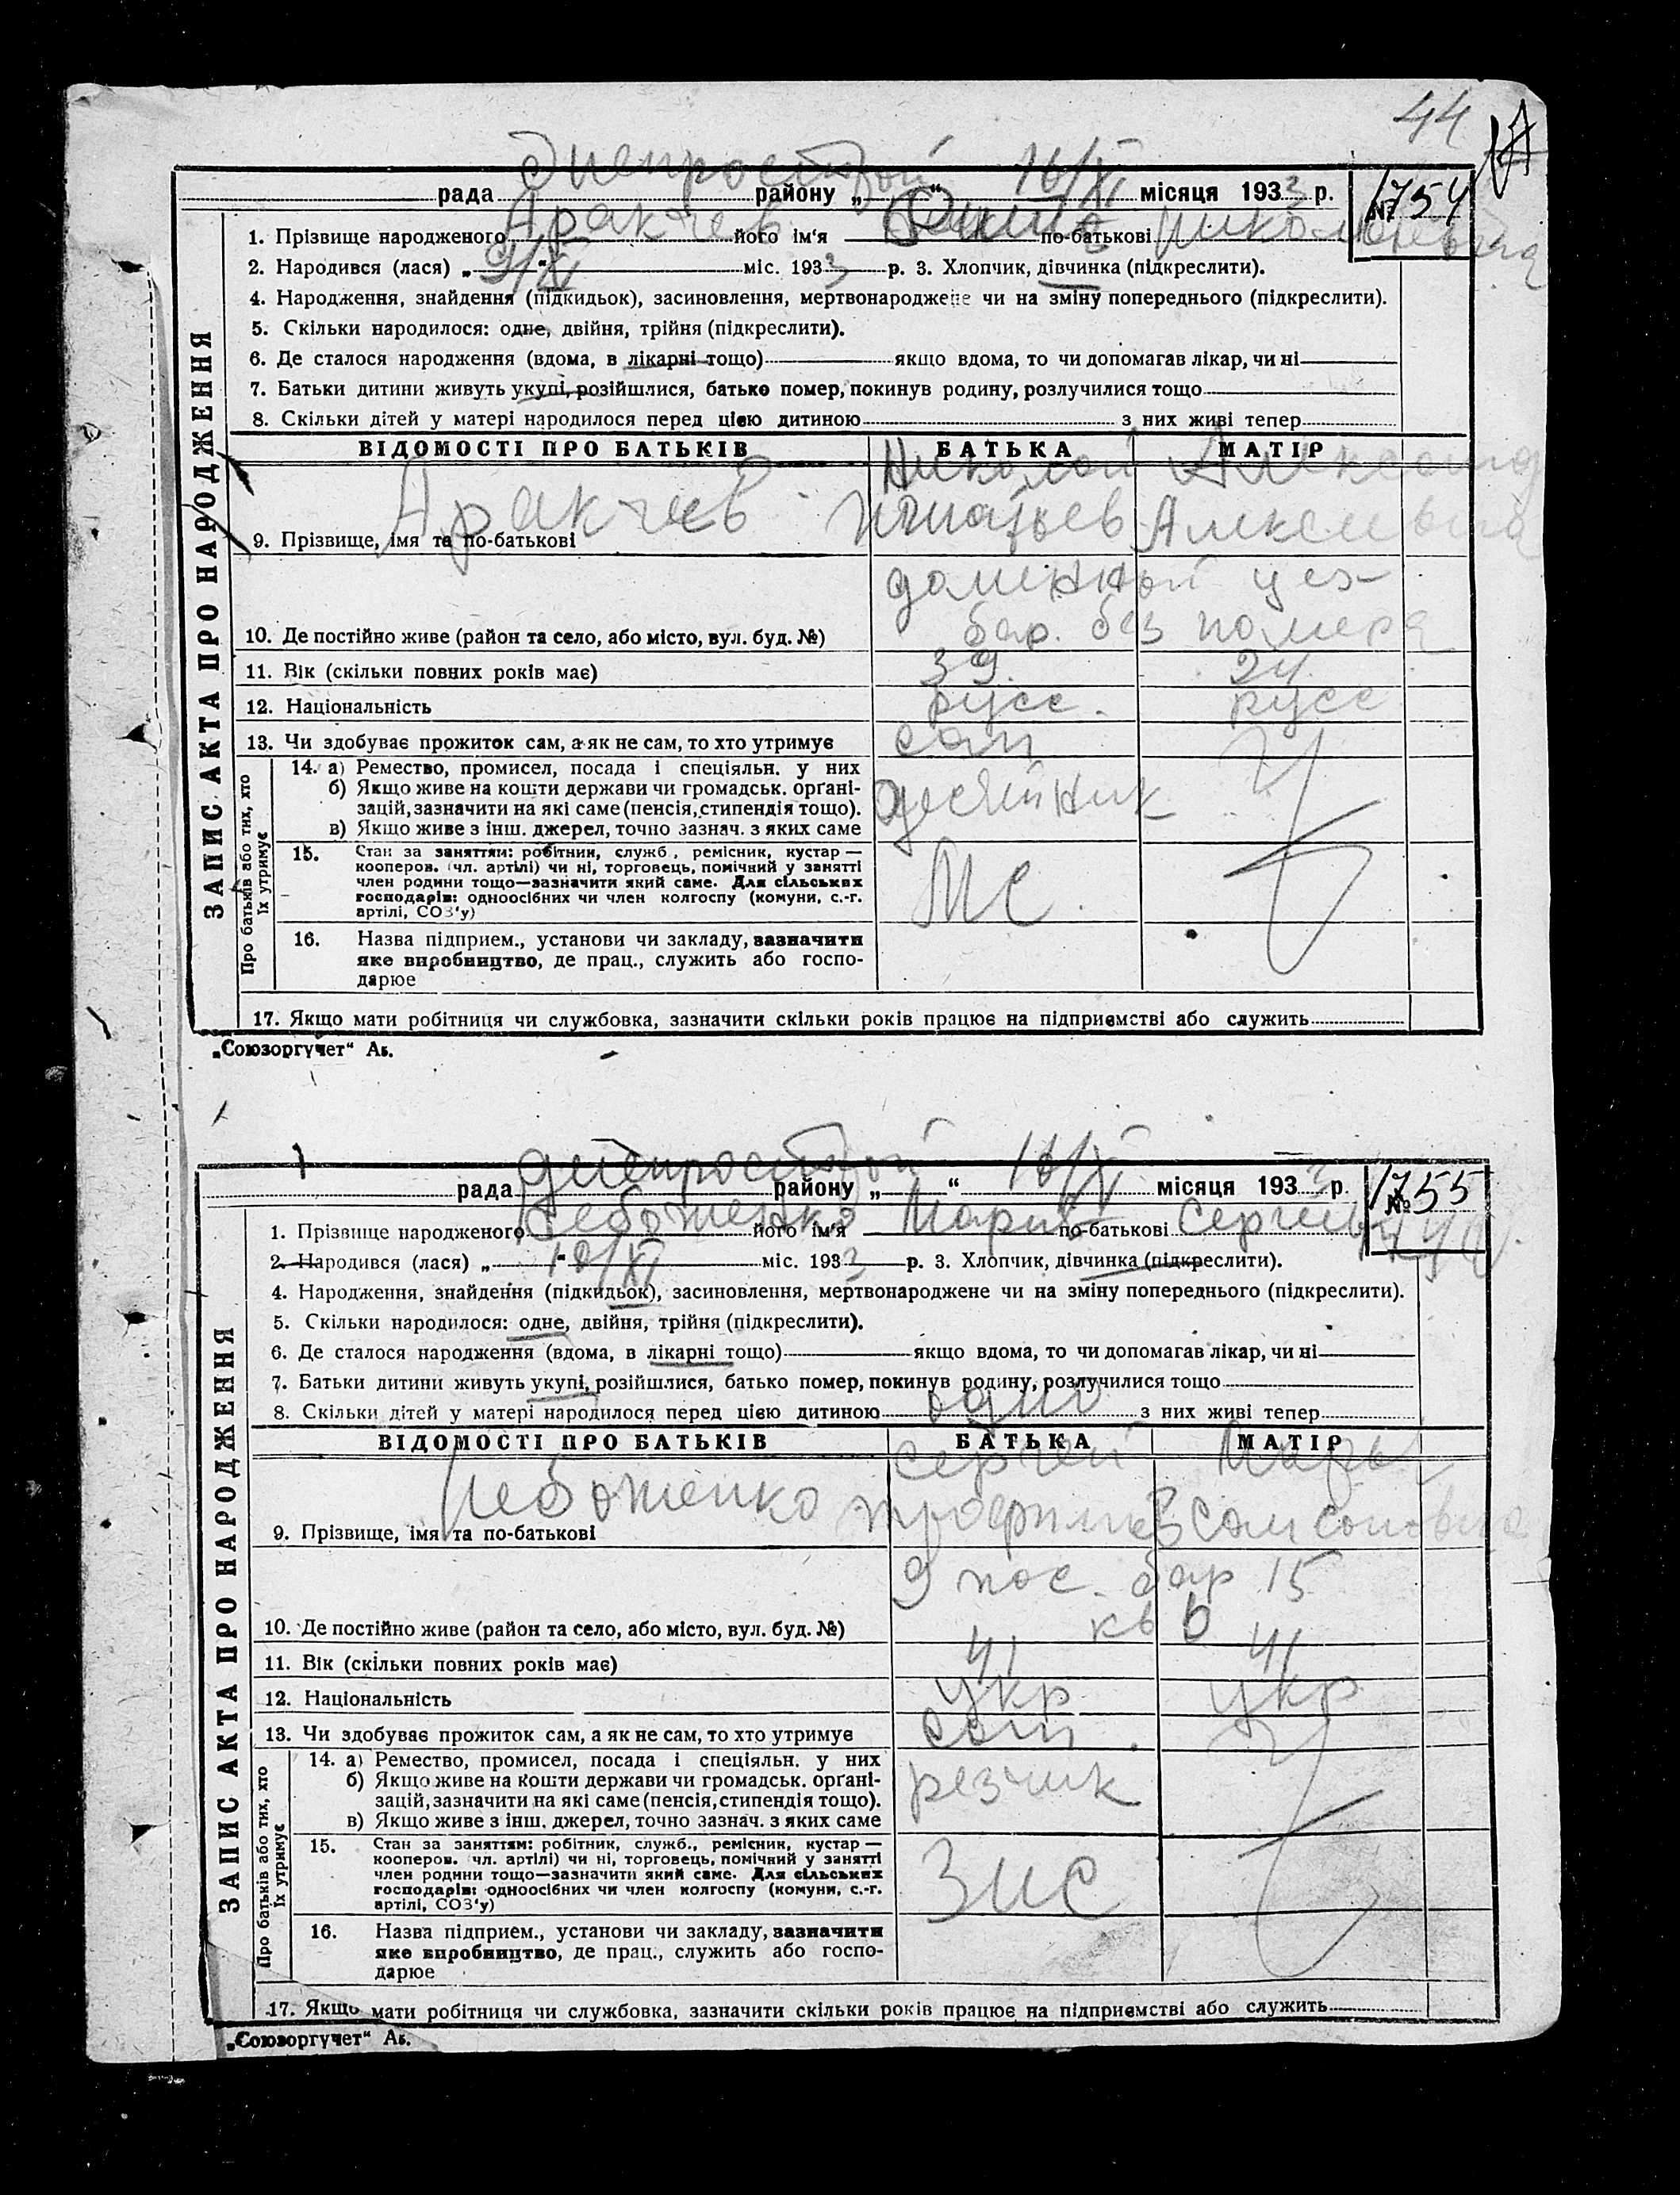 44
Днепрострой 16/XI
рада района „ “ місяця 1933 р. № 1754
1. Прізвище народженого Аракчев його ім'я по-батькові Николаевна
2. Народився (лася) „ 9/XI “ міс. 1933 р. 3. Хлопчик, дівчинка (підкреслити).
4. Народження, знайдення (підкидьок), засиновлення, мертвонароджене чи на зміну попереднього (підкреслити).
5. Скільки народилося: одне, двійня, трійня (підкреслити).
6. Де сталося народження (вдома, в лікарні тощо) якщо вдома, то чи допомагав лікар, чи ні
7. Батьки дитини живуть укупі, розійшлися, батько помер, покинув родину, розлучилися тощо
8. Скільки дітей у матері народилося перед цією дитиною з них живі тепер
ЗАПИС АКТА ПРО НАРОДЖЕННЯ
ВІДОМОСТІ ПРО БАТЬКІВ БАТЬКА МАТІР
Николай
Аракчев Игнатьев Алексевна
9. Прізвище, імя та по-батькові
доменный цех
10. Де постійно живе (район та село, або місто, вул. буд. №) бар. без номера
11. Вік (скільки повних років має) 39. 24
12. Національність русс. русс
13. Чи здобуває прожиток сам, а як не сам, то хто утримує сам
Про батьків або тих, хто їх утримує
14. а) Ремество, промисел, посада і спеціяльн. у них
б) Якщо живе на кошти держави чи громадськ. орґані-
зацій, зазначити на які саме (пенсія, стипендія тощо). десятник
в) Якщо живе з інш. джерел, точно зазнач. з яких саме
15. Стан за заняттям: робітник, служб., ремісник, кустар —
кооперов. (чл. артілі) чи ні, торговець, помічний у занятті
член родини тощо—зазначити який саме. Для сільських
господарів: одноосібних чи член колгоспу (комуни, с.-г.
артілі, СОЗ'у)
16. Назва підприєм., установи чи закладу, зазначити
яке виробництво, де прац., служить або госпо-
дарює
17. Якщо мати робітниця чи службовка, зазначити скільки років працює на підприємстві або служить
„Союзоргучет“ Аз.
Днепрострой 16/XI
рада району „ “ місяця 1933 р. № 1755
1. Прізвище народженого Небоженко його ім'я Мария по-батькові Сергеевна
2. Народився (лася) „ 10/XI “ міс. 1933 р. 3. Хлопчик, дівчинка (підкреслити).
4. Народження, знайдення (підкидьок), засиновлення, мертвонароджене чи на зміну попереднього (підкреслити).
5. Скільки народилося: одне, двійня, трійня (підкреслити).
6. Де сталося народження (вдома, в лікарні тощо) якщо вдома, то чи допомагав лікар, чи ні
7. Батьки дитини живуть укупі, розійшлися, батько помер, покинув родину, розлучилися тощо
8. Скільки дітей у матері народилося перед цією дитиною одно з них живі тепер
ЗАПИС АКТА ПРО НАРОДЖЕННЯ
ВІДОМОСТІ ПРО БАТЬКІВ БАТЬКА МАТІР
Сергей Марья
Небоженко Трофимов Самсоновна
9. Прізвище, імя та по-батькові
9 пос. бар 15
10. Де постійно живе (район та село, або місто, вул. буд. №) кв 6
11. Вік (скільки повних років має) 41 41
12. Національність укр укр
13. Чи здобуває прожиток сам, а як не сам, то хто утримує сам
Про батьків або тих, хто їх утримує
14. а) Ремество, промисел, посада і спеціяльн. у них
б) Якщо живе на кошти держави чи громадськ. орґані- резчик
зацій, зазначити на які саме (пенсія, стипендія тощо).
в) Якщо живе з інш. джерел, точно зазнач. з яких саме
15. Стан за заняттям: робітник, служб., ремісник, кустар —
кооперов. чл. артілі) чи ні, торговець, помічний у занятті
член родини тощо—зазначити який саме. Для сільських
господарів: одноосібних чи член колгоспу (комуни, с.-г.
артілі, СОЗ'у)
16. Назва підприєм., установи чи закладу, зазначити
яке виробництво, де прац., служить або госпо-
дарює
17. Якщо мати робітниця чи службовка, зазначити скільки років працює на підприємстві або служить
„Союзоргучет“ Аз.